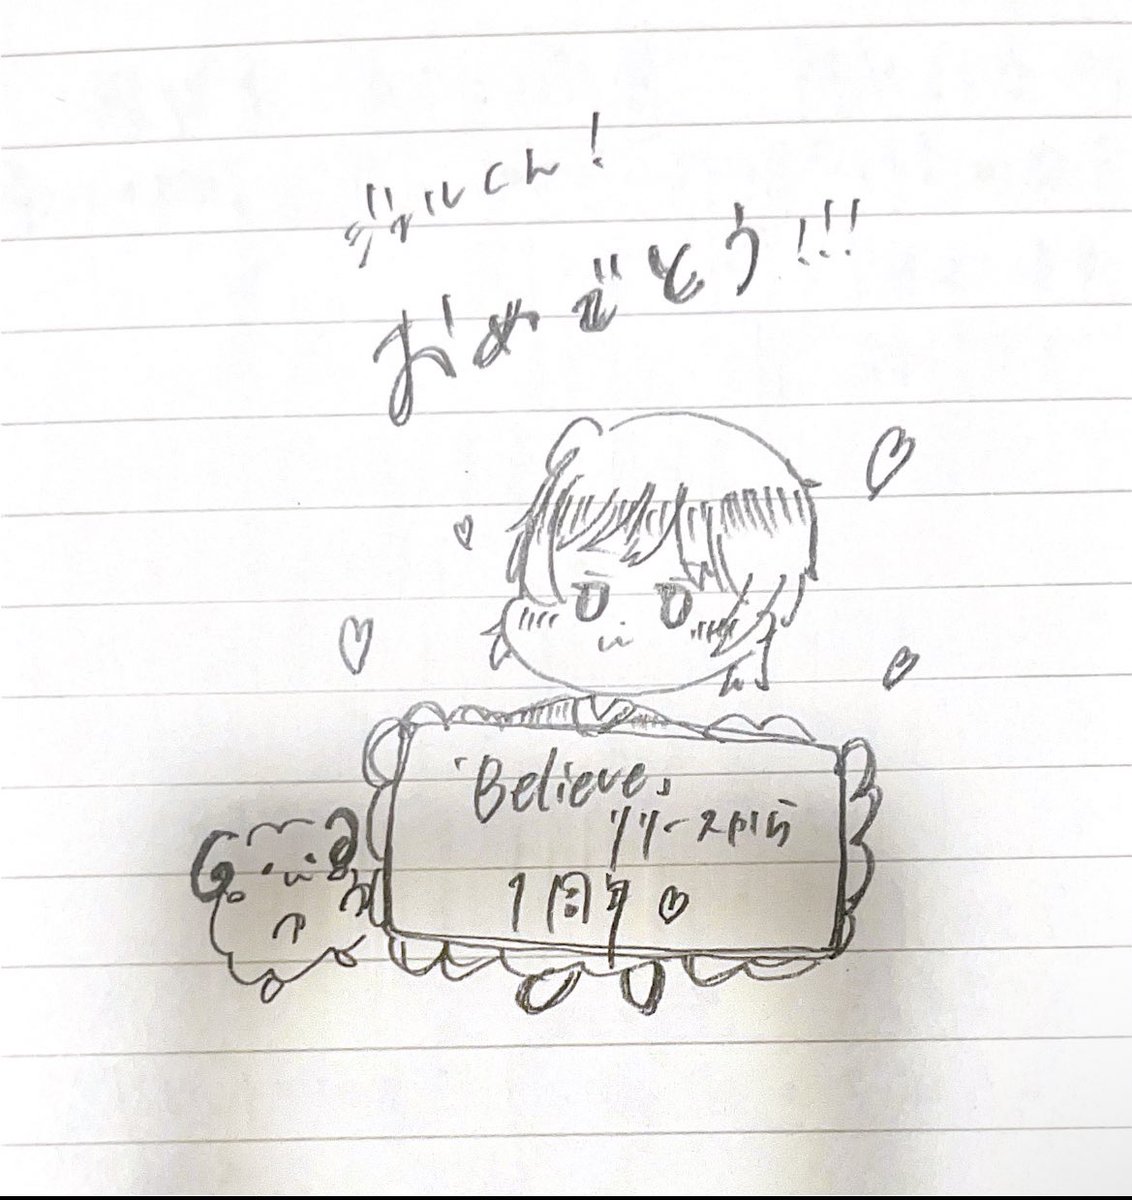 ジルくん!
おめでとう!!!
「Believe」
リリースから
1周年♡